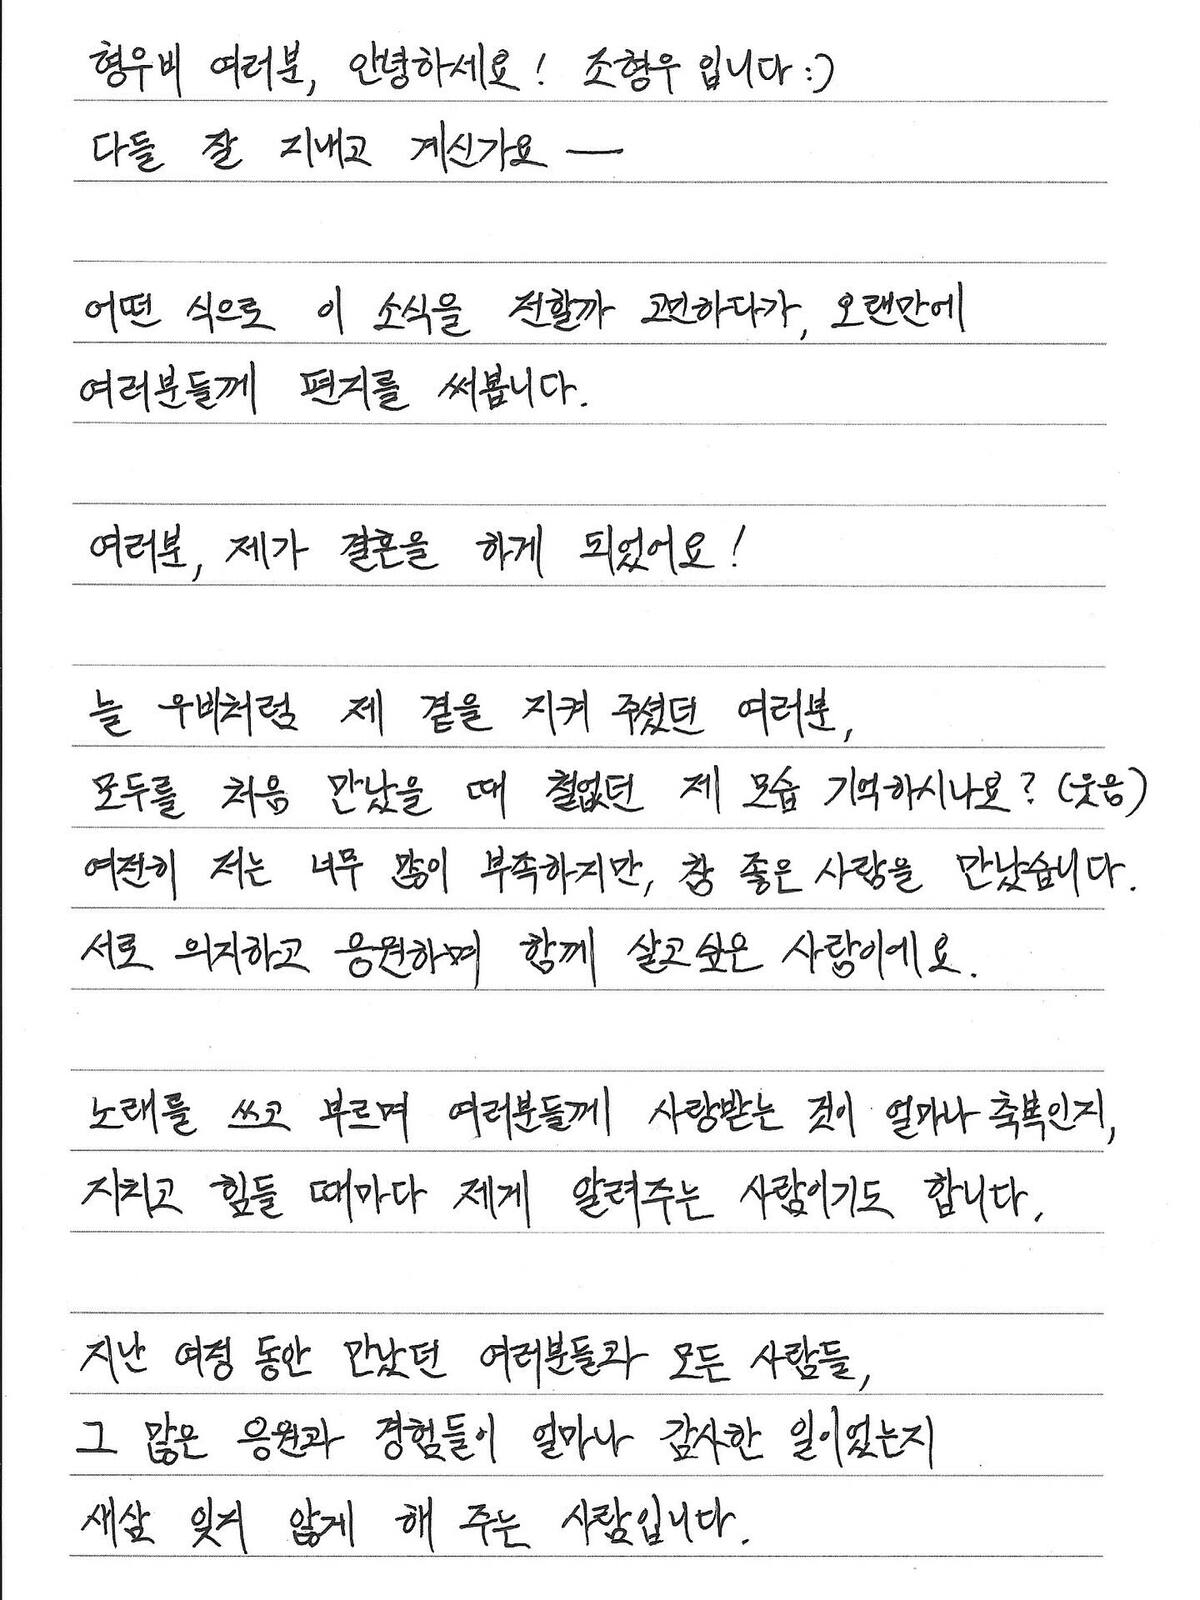 형우비 여러분, 안녕하세요! 조형우 입니다 :)
다들 잘 지내고 계신가요 —
어떤 식으로 이 소식을 전할까 고민하다가, 오랜만에
여러분들께 편지를 써봅니다.
여러분, 제가 결혼을 하게 되었어요!
늘 우비처럼 제 곁을 지켜 주셨던 여러분,
모두를 처음 만났을 때 철없던 제 모습 기억하시나요? (웃음)
여전히 저는 너무 많이 부족하지만, 참 좋은 사람을 만났습니다.
서로 의지하고 응원하며 함께 살고싶은 사람이에요.
노래를 쓰고 부르며 여러분들께 사랑받는 것이 얼마나 축복인지,
지치고 힘들 때마다 제게 알려주는 사람이기도 합니다.
지난 여정 동안 만났던 여러분들과 모든 사람들,
그 많은 응원과 경험들이 얼마나 감사한 일이었는지
새삼 잊지 않게 해 주는 사람입니다.